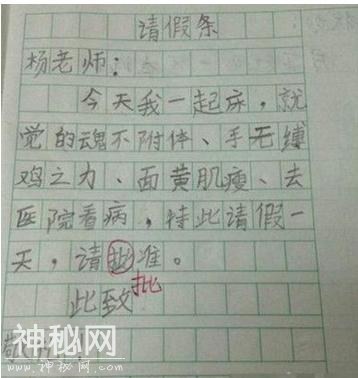 请假条
杨老师：
今天我一起床，就
觉的魂不附体、手无缚
鸡之力、面黄肌瘦、去
医院看病，特此请假一
天，请批准。
批
此致
敬礼
神秘网
www.神秘网.com